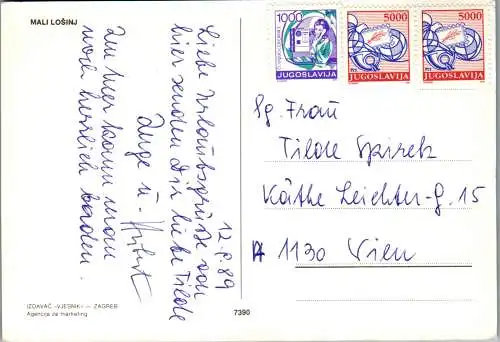 MALI LOŠINJ
12.9.89
Liebe Urlaubsgrüße von
hier senden Dir liebe Tilde
Inge u. Hubert
Im Meer kann man
noch herrlich baden.
IZDAVAČ »VJESNIK« — ZAGREB
Agencija za marketing
7390
1000
JUGOSLAVIJA
5000
JUGOSLAVIJA
5000
JUGOSLAVIJA
Sg. Frau
Tilde
Käthe Leichter-G. 15
A 1130 Wien